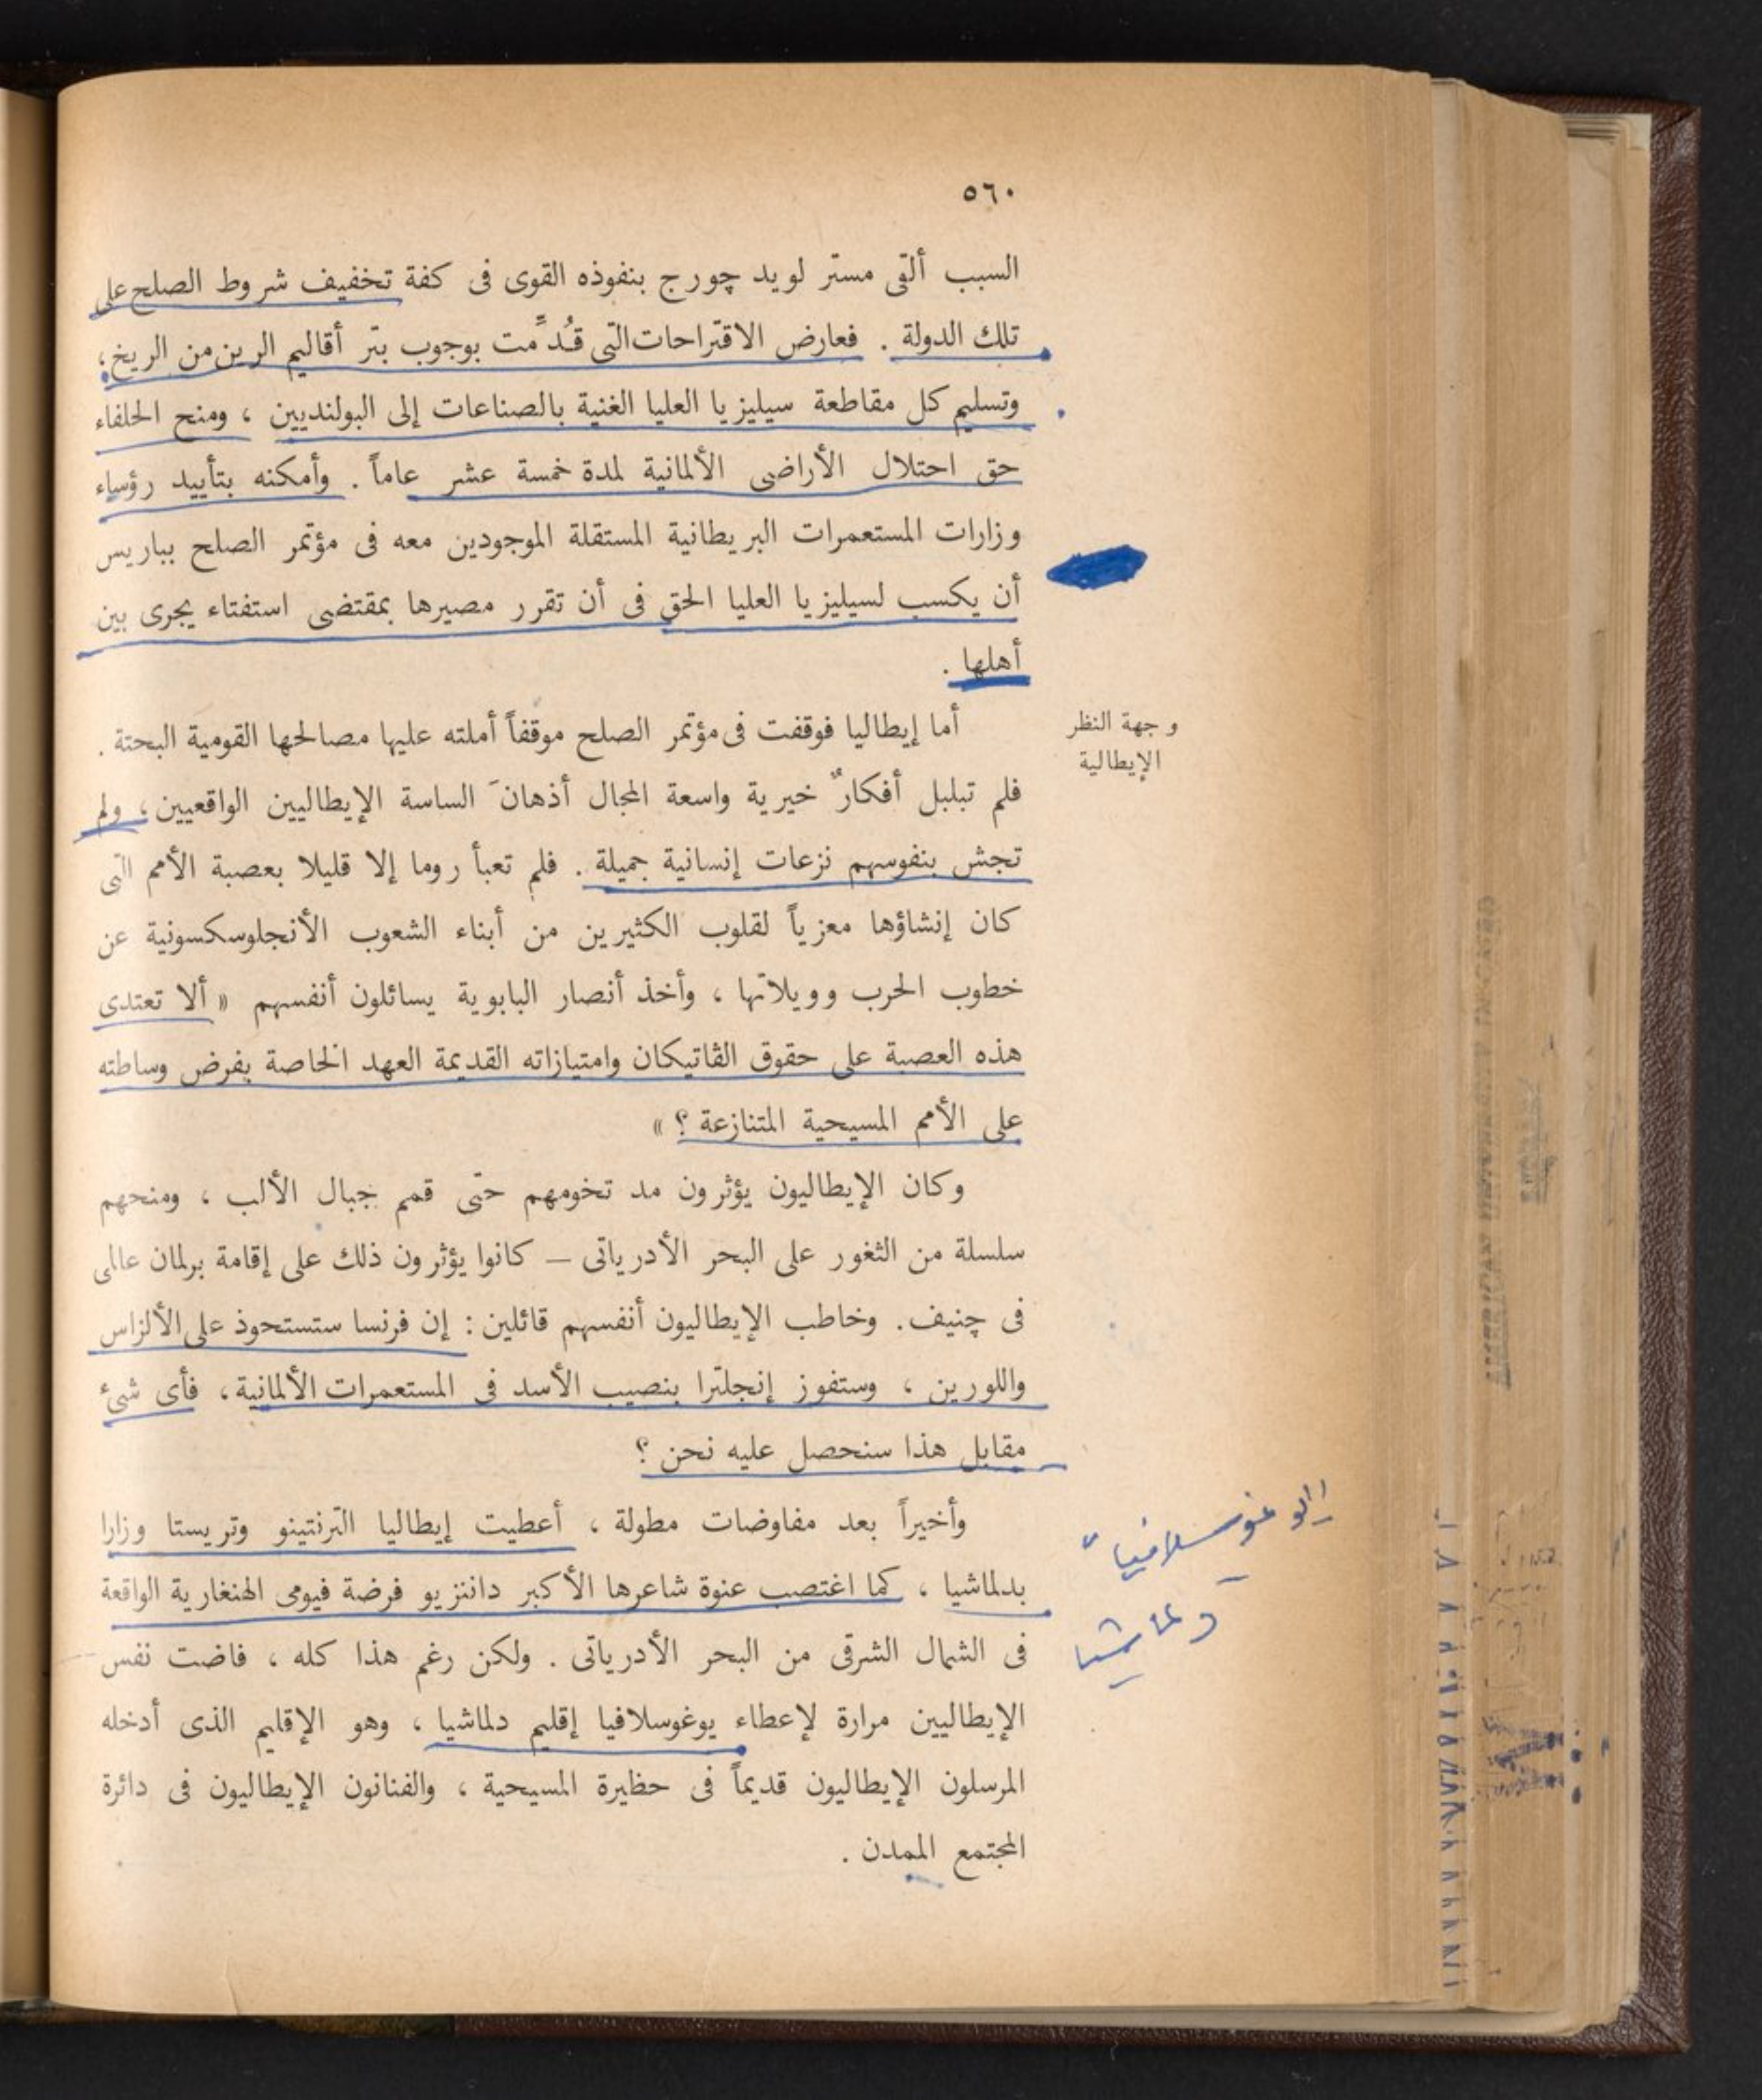 ٥٦٠
السبب ألقى مستر لويد چورج بنفوذه القوى فى كفة تخفيف شروط الصلح على
تلك الدولة . فعارض الاقتراحات التى قُدِّمت بوجوب بتر أقاليم الرين من الريخ ،
وتسليم كل مقاطعة سيليزيا العليا الغنية بالصناعات إلى البولنديين ، ومنح الحلفاء
حق احتلال الأراضى الألمانية لمدة خمسة عشر عاماً . وأمكنه بتأييد رؤساء
وزارات المستعمرات البريطانية المستقلة الموجودين معه فى مؤتمر الصلح بباريس
أن يكسب لسيليزيا العليا الحق فى أن تقرر مصيرها بمقتضى استفتاء يجرى بين
أهلها .
وجهة النظر
الإيطالية
أما إيطاليا فوقفت فى مؤتمر الصلح موقفاً أملته عليها مصالحها القومية البحتة .
فلم تبلبل أفكارٌ خيرية واسعة المجال أذهانَ الساسة الإيطاليين الواقعيين ، ولم
تجش بنفوسهم نزعات إنسانية جميلة . فلم تعبأ روما إلا قليلا بعصبة الأمم التى
كان إنشاؤها معزياً لقلوب الكثيرين من أبناء الشعوب الأنجلوسكسونية عن
خطوب الحرب وويلاتها ، وأخذ أنصار البابوية يسائلون أنفسهم « ألا تعتدى
هذه العصبة على حقوق الڤاتيكان وامتيازاته القديمة العهد الخاصة بفرض وساطته
على الأمم المسيحية المتنازعة ؟ »
وكان الإيطاليون يؤثرون مد تخومهم حتى قمم جبال الألب ، ومنحهم
سلسلة من الثغور على البحر الأدرياتى – كانوا يؤثرون ذلك على إقامة برلمان عالمى
فى چنيف . وخاطب الإيطاليون أنفسهم قائلين : إن فرنسا ستستحوذ على الألزاس
واللورين ، وستفوز إنجلترا بنصيب الأسد فى المستعمرات الألمانية ، فأى شىء
مقابل هذا سنحصل عليه نحن ؟
وأخيراً بعد مفاوضات مطولة ، أعطيت إيطاليا الترنتينو وتريستا وزارا
بدلماشيا ، كما اغتصب عنوة شاعرها الأكبر داننزيو فرضة فيومى الهنغارية الواقعة
فى الشمال الشرقى من البحر الأدرياتى . ولكن رغم هذا كله ، فاضت نفس
الإيطاليين مرارة لإعطاء يوغوسلافيا إقليم دلماشيا ، وهو الإقليم الذى أدخله
المرسلون الإيطاليون قديماً فى حظيرة المسيحية ، والفنانون الإيطاليون فى دائرة
المجتمع الممدن .
دلماشيا